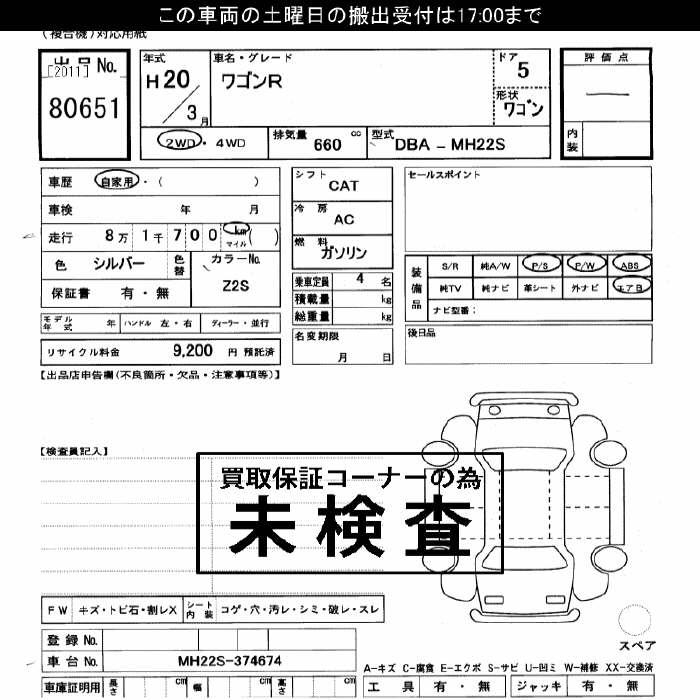 この車両の土曜日の搬出受付は17:00まで
(複合機)対応用紙
出品 No.
[2011]
80651
年式
H20
3月
車名・グレード
ワゴンR
ドア
5
形状
ワゴン
2WD・4WD
排気量 660 cc
型式 DBA - MH22S
評価点
内装
車歴 自家用・( )
車検 年 月
走行 8万1千700 km マイル ( )
色 シルバー 色替 カラーNo.
保証書 有・無 Z2S
シフト CAT
冷房 AC
燃料 ガソリン
乗車定員 4 名
積載量 kg
総重量 kg
名変期限
月 日
セールスポイント
装備品
S/R 純A/W P/S P/W ABS
純TV 純ナビ 革シート 外ナビ エアB
ナビ型番:
後日品
モデル年式 年 ハンドル 左・右 ディーラー・並行
リサイクル料金 9,200 円 預託済
【出品店申告欄(不良箇所・欠品・注意事項等)】
【検査員記入】
買取保証コーナーの為
未検査
FW キズ・トビ石・割レX シート内装 コゲ・穴・汚レ・シミ・破レ・スレ
登録 No.
車台 No. MH22S-374674
車庫証明用 長さ cm 幅 cm 高さ cm
スペア
A-キズ C-腐食 E-エクボ S-サビ U-凹ミ W-補修 XX-交換済
工具 有・無 ジャッキ 有・無